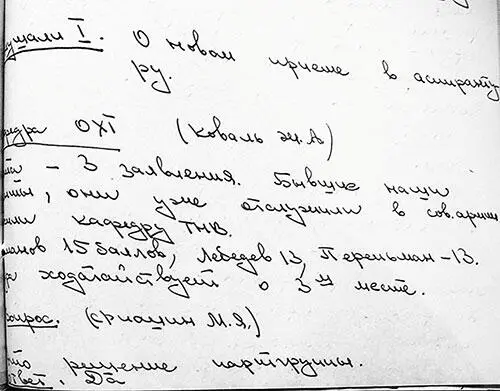 ушали I. О новом приеме в аспиранту
ру.
федра ОХТ (Коваль Ж.А)
– 3 заявления. Бывшие наши
, они уже отслужили в сов.армии
кафедру ТНВ.
манов 15 баллов, Лебедев 13, Перельман – 13.
ра ходатайствует о 3м месте.
опрос. (Фиошин М.Я.)
решение партгруппы.
ответ. Да